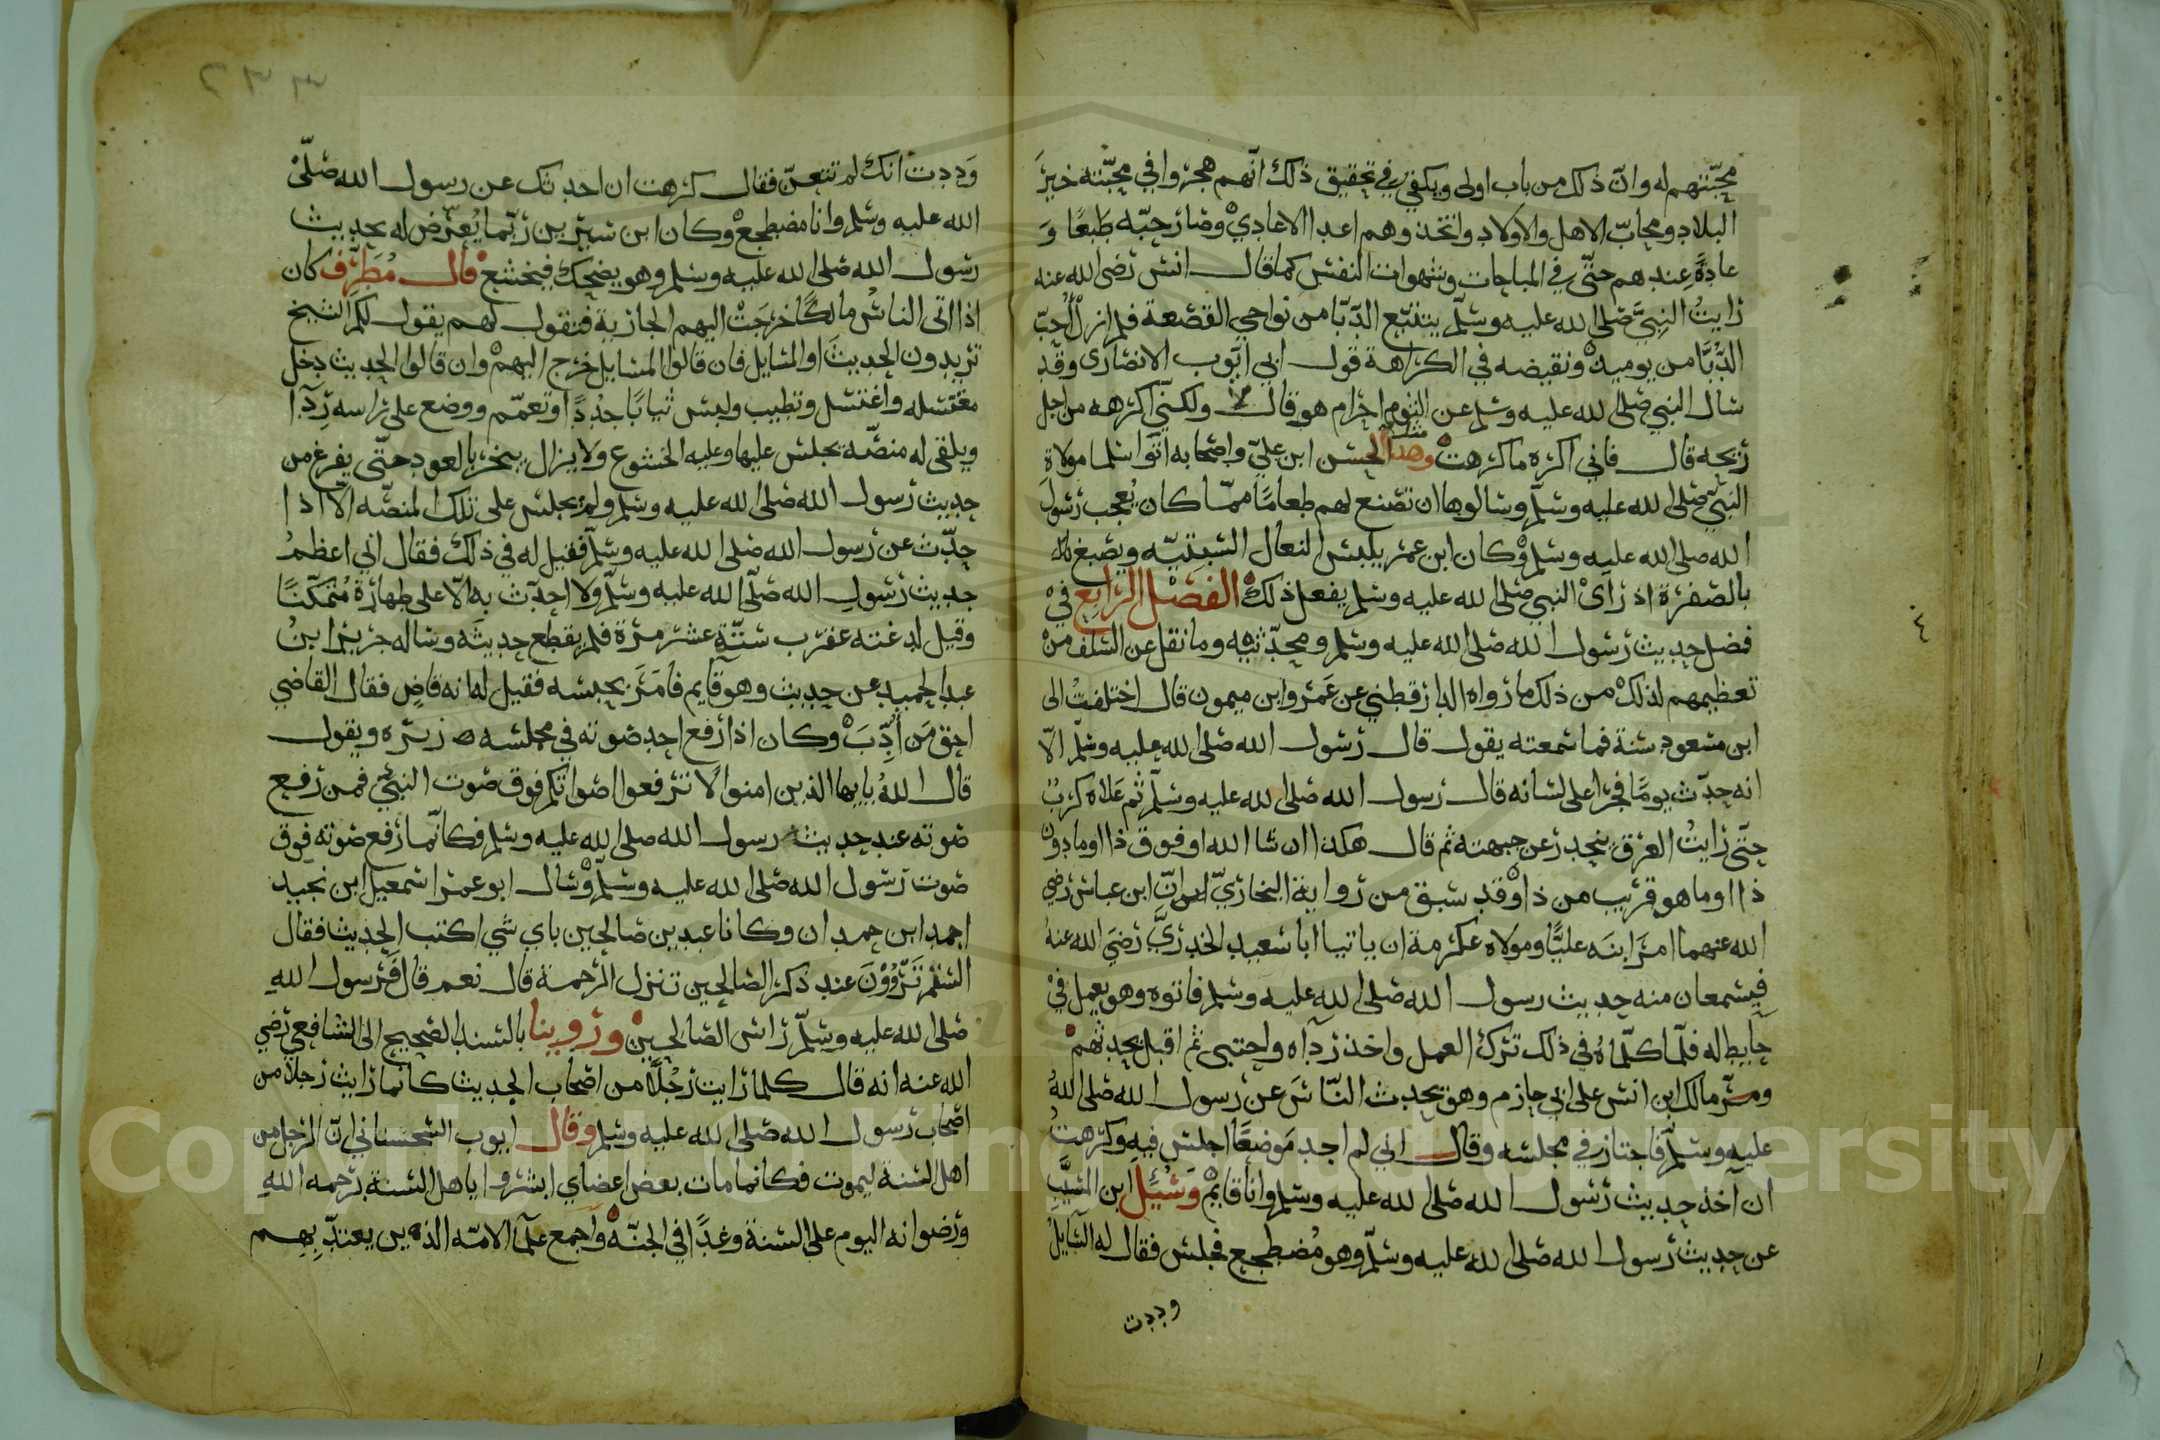 محبّتهم له وانّ ذلك من باب اولى ويكفي في تحقيق ذلك انّهم هجروا في محبّته خير
البلاد ومحابّ الاهل والاولاد واتخذوهم اعدا الاعادي وصار حبّه طبعًا و
عادةً عندهم حتّى في المباحات وشهوات النفس كما قال انس رضى الله عنه
رايتُ النبيَّ صلى الله عليه وسلّم يتتبّع الدّبّا من نواحي القصعة فلم ازل اُحبّ
الدُّبّا من يوميذ ونقيضه في الكراهة قول ابي ايّوب الانصارى وقد
سال النبي صلى الله عليه وسلم عن الثوم احرام هو قال لا ولكنّي اكرهه من اجل
ريحه قال فاني اكره ما كرهت وهذا الحسن ابن عليّ واصحابه اتوا سلما مولاة
النبيّ صلى الله عليه وسلّم وسالوها ان تصنع لهم طعامًا ممّا كان يُعجب رسول
الله صلى الله عليه وسلم وكان ابن عمر يلبس النعال السّبتيّه ويصبغ
بالصّفرة اذ رآى النبي صلى الله عليه وسلم يفعل ذلك الفصل الرابع في
فضل حديث رسول الله صلى الله عليه وسلم ومحدّثيه وما نقل عن السّلف من
تعظيمهم لذلك من ذلك ما رواه الدارقطني عن عَمرو ابن ميمون قال اختلفتُ الى
ابن مسعود سنة فما سمعته يقول قال رسول الله صلى الله عليه وسلّم الّا
انه حدّث يومًا فجرا على لسانه قال رسول الله صلى الله عليه وسلّم ثم عَلاه كربٌ
حتّى رايتُ العرق يتحدر عن جبهته ثم قال هكذا ان شا الله او فوق ذا او ما دون
ذا او ما هو قريب من ذا وقد سبق من رواية البخاريّ انّ ابن عباس رضي
الله عنهما امر ابنَه عليًّا ومولاه عكرمة ان ياتيا ابا سعيد الخدريَّ رضيَ الله عنهُ
فيسمعان منه حديث رسول الله صلى الله عليه وسلم فاتوه وهو يعمل في
حايط له فلمّا كلّماهُ في ذلك ترك العمل واخذ ردآه واحتبى ثم اقبل يحدثهم
ومرّ مالك ابن انس على ابي حازم وهو يحدث النّاسَ عن رسول الله صلى اللهُ
عليه وسلّم فاجتاز في مجلسه وقال اني لم اجد مَوضعًا اجلس فيه وكرهتُ
ان آخذ حديث رسول الله صلى الله عليه وسلم وانا قايم وَسُئِل ابن المسيَّب
عن حديث رسول الله صلى الله عليه وسلّم وهو مُضطجع فجلس فقال له السّايلُ
وددت
٢٣٣
وَدِدت انك لم تتعنّ فقال كرهت ان احدثك عن رسول الله صلّى
الله عليه وسلم وانا مضطجع وكان ابن سيرين ربّما يُعرّض له بحديث
رسول الله صلى الله عليه وسلم وهو يضحك فيخشع قال مُطرّف كان
اذا اتى الناسُ مالكًا خرجَتْ اليهم الجازية فتقول لهم يقول لكم الشيخ
تريدون الحديثَ او المسايل فان قالوا المسايل خرج اليهمْ وان قالوا الحديث دخل
مغتسله واغتسل وتطيب ولبس ثيابًا جُدُدًا وتعمّم ووضع على راسه ردآ
ويلقى له منصّة يجلس عليها وعليه الخشوع ولا يزال يبخر بالعود حتّى يفرغ من
حديث رسول الله صلى الله عليه وسلم ولم يجلس على تلك المنصّه الّا اذا
حدّث عن رسول الله صلى الله عليه وسلّم فقيل له في ذلك فقال اني اعظمُ
حديث رسول الله صلّى الله عليه وسلّم ولا احدّث به الّا على طهارة مُتمكّنًا
وقيل لدغته عقرب ستّة عشر مرّة فلم يقطع حديثَه وساله جرير ابنُ
عبد الحميد عن حديث وهو قايم فامَرَ بحبسه فقيل له انه قاضٍ فقال القاضي
احق مَن اُدِّبَ وكان اذا رفع احد صوته في مجلسه زبره ويقول
قال اللهُ يايها الذين امنوا لا ترفعوا اصواتكم فوق صوت النبيّ فمن رفع
صوته عند حديث رسول الله صلى الله عليه وسلم فكانّما رفع صوته فوق
صوت رسول الله صلى الله عليه وسلّم وسال ابو عمر اسمعيل ابن نجيد
احمد ابن حمدان وكانا عبدين صالحين باي شي اكتب الحديث فقال
الستم تَرْوُوْنَ عند ذكر الصالحين تنزل الرحمة قال نعم قال فرسول اللهِ
صلى الله عليه وسلّم راس الصالحين وروينا بالسند الصحيح الى الشافعي رضي
الله عنه انه قال كلما رايت رَجُلًا من اصحاب الحديث كانما رايت رجلًا من
اصحاب رسول الله صلى الله عليه وسلم وقال ايوب السّختياني انّ الرجل من
اهل السنة ليموت فكانما مات بعض اعضاي ابشروا ياهل السنة رحمه اللهِ
ورضوانه اليوم على السنة وغدًا في الجنّه واجمع علمآ الامّه الذين يعتدّ بِهِم
Copyright © King Saud University